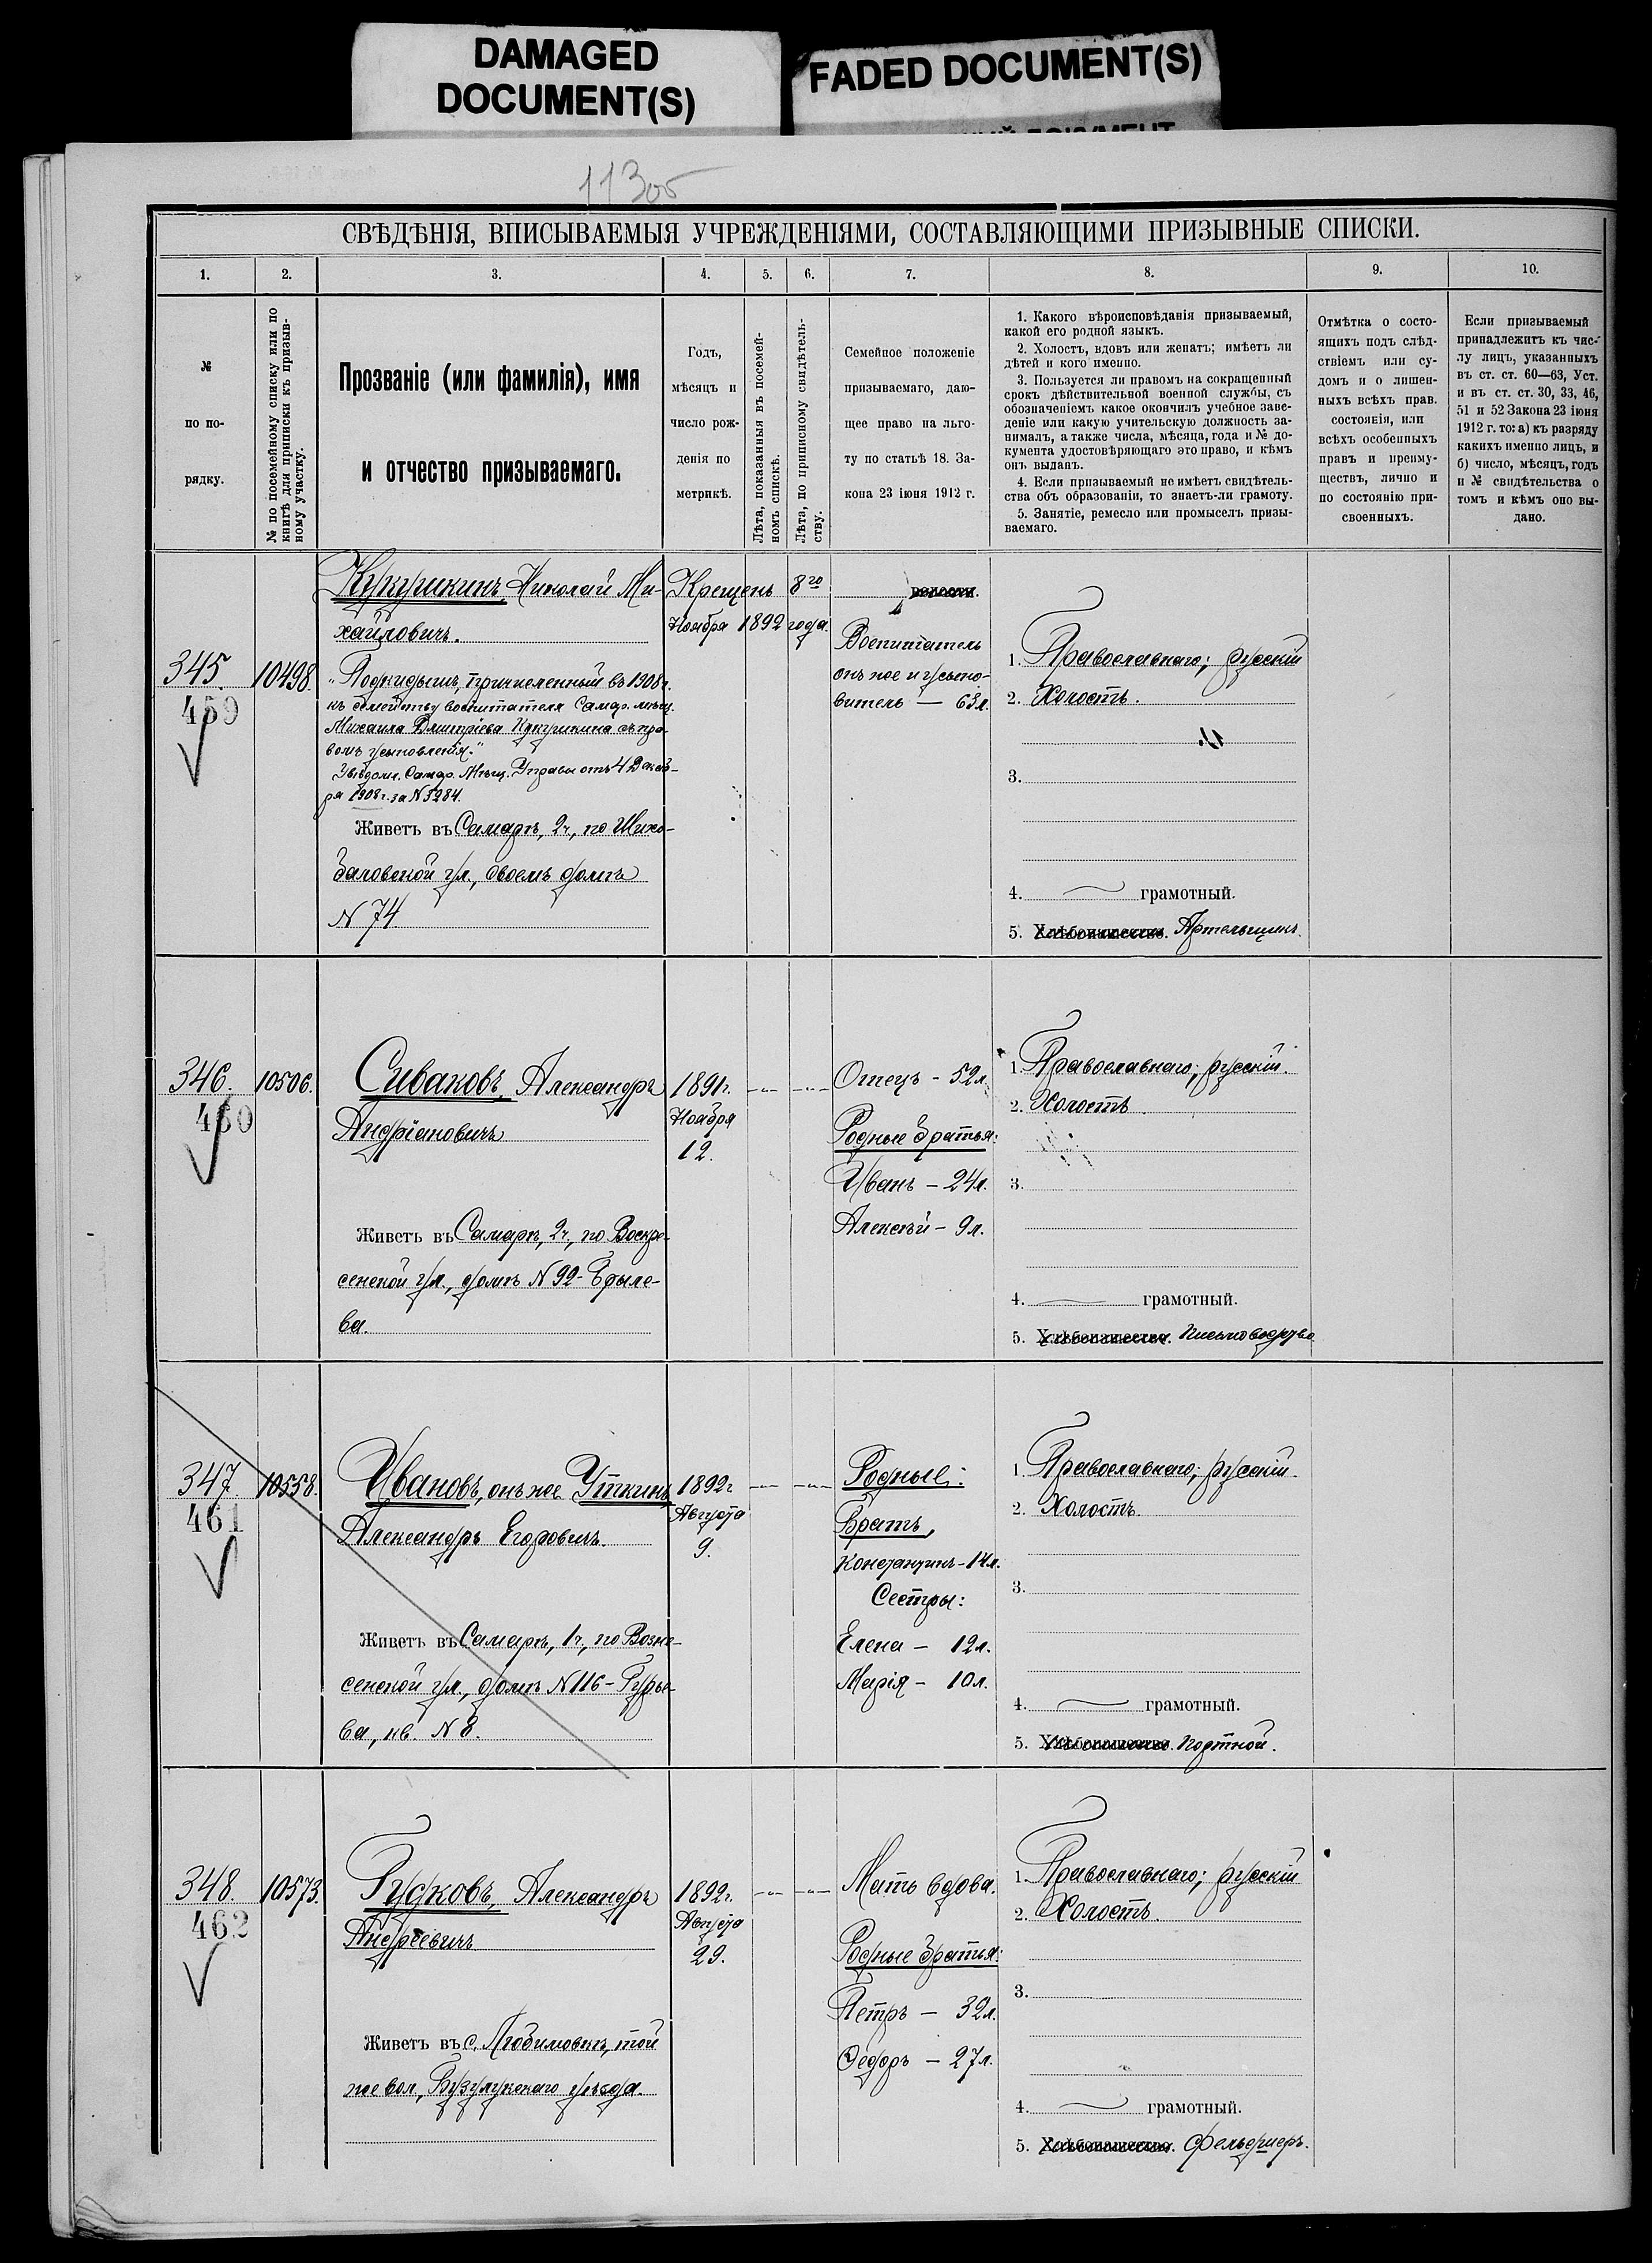 DAMAGED
DOCUMENT(S)
FADED DOCUMENT(S)
113об
СВѢДѢНІЯ, ВПИСЫВАЕМЫЯ УЧРЕЖДЕНІЯМИ, СОСТАВЛЯЮЩИМИ ПРИЗЫВНЫЕ СПИСКИ.
1.
2.
3.
4.
5.
6.
7.
8.
9.
10.
№
по по-
рядку.
№ по посемейному списку или по
книгѣ для приписки къ призыв-
ному участку.
Прозваніе (или фамилія), имя
и отчество призываемаго.
Годъ,
мѣсяцъ и
число рож-
денія по
метрикѣ.
Лѣта, показанныя въ посемей-
номъ спискѣ.
Лѣта, по приписному свидѣтель-
ству.
Семейное положеніе
призываемаго, даю-
щее право на льго-
ту по статьѣ 18. За-
кона 23 іюня 1912 г.
1. Какого вѣроисповѣданія призываемый,
какой его родной языкъ.
2. Холостъ, вдовъ или женатъ; имѣетъ ли
дѣтей и кого именно.
3. Пользуется ли правомъ на сокращенный
срокъ дѣйствительной военной службы, съ
обозначеніемъ какое окончилъ учебное заве-
деніе или какую учительскую должность за-
нималъ, а также числа, мѣсяца, года и № до-
кумента удостовѣряющаго это право, и кѣмъ
онъ выданъ.
4. Если призываемый не имѣетъ свидѣтель-
ства объ образованіи, то знаетъ-ли грамоту.
5. Занятіе, ремесло или промыселъ призы-
ваемаго.
Отмѣтка о состо-
ящихъ подъ слѣд-
ствіемъ или су-
домъ и о лишен-
ныхъ всѣхъ прав.
состоянія, или
всѣхъ особенныхъ
правъ и преиму-
ществъ, лично и
по состоянію при-
своенныхъ.
Если призываемый
принадлежитъ къ чис-
лу лицъ, указанныхъ
въ ст. ст. 60—63, Уст.
и въ ст. ст. 30, 33, 46,
51 и 52 Закона 23 іюня
1912 г. то: а) къ разряду
какихъ именно лицъ, и
б) число, мѣсяцъ, годъ
и № свидѣтельства о
томъ и кѣмъ оно вы-
дано.
345.
459
10498.
Кукушкинъ, Николай Ми-
хайловичъ.
"Подкидышъ, причисленный въ 1908 г.
къ семейству воспитателя Самар. мѣщ.
Михаила Дмитріева Кукушкина съ пра-
вомъ усыновленія."
Увѣдомл. Самар. Мѣщ. Управы отъ 4 Декаб-
ря 1908 г. за N 5284.
Живетъ въ Самарѣ, 2 ч., по Шихо-
баловской ул., своемъ домѣ
N 74
Крещенъ 8го
Ноября 1892 года.
волости.
Воспитатель
онъ же и усыно-
витель — 63 л.
1. Православнаго; русскій
2. Холостъ.
3.
4. грамотный.
5. Хлѣбопашество. Артельщикъ.
346.
460
10506.
Сиваковъ, Александръ
Андріановичъ
Живетъ въ Самарѣ, 2 ч., по Воскре-
сенской ул., домъ N 92 - Едыле-
ва.
1891 г.
Ноября
12.
Отецъ - 52 л.
Родные братья:
Иванъ - 24 л.
Алексѣй - 9 л.
1. Православнаго; русскій.
2. Холостъ.
3.
4. грамотный.
5. Хлѣбопашество. Письмоводство
347.
461
10558.
Ивановъ, онъ же Уткинъ
Александръ Егоровичъ.
Живетъ въ Самарѣ, 1 ч., по Возне-
сенской ул., домъ N 116 - Гурье-
ва, кв. N 8.
1892 г
Августа
9.
Родные:
Братъ,
Константинъ - 14 л.
Сестры:
Елена - 12 л.
Марія - 10 л.
1. Православнаго; русскій.
2. Холостъ.
3.
4. грамотный.
5. Хлѣбопашество. Портной.
348.
462
10573.
Гудковъ, Александръ
Андреевичъ
Живетъ въ с. Любимовкѣ, той
же вол., Бузулукскаго уѣзда.
1892 г.
Августа
29.
Мать вдова.
Родные братья:
Петръ — 32 л.
Ѳедоръ — 27 л.
1. Православнаго; русскій
2. Холостъ.
3.
4. грамотный.
5. Хлѣбопашество. Фельдшеръ.